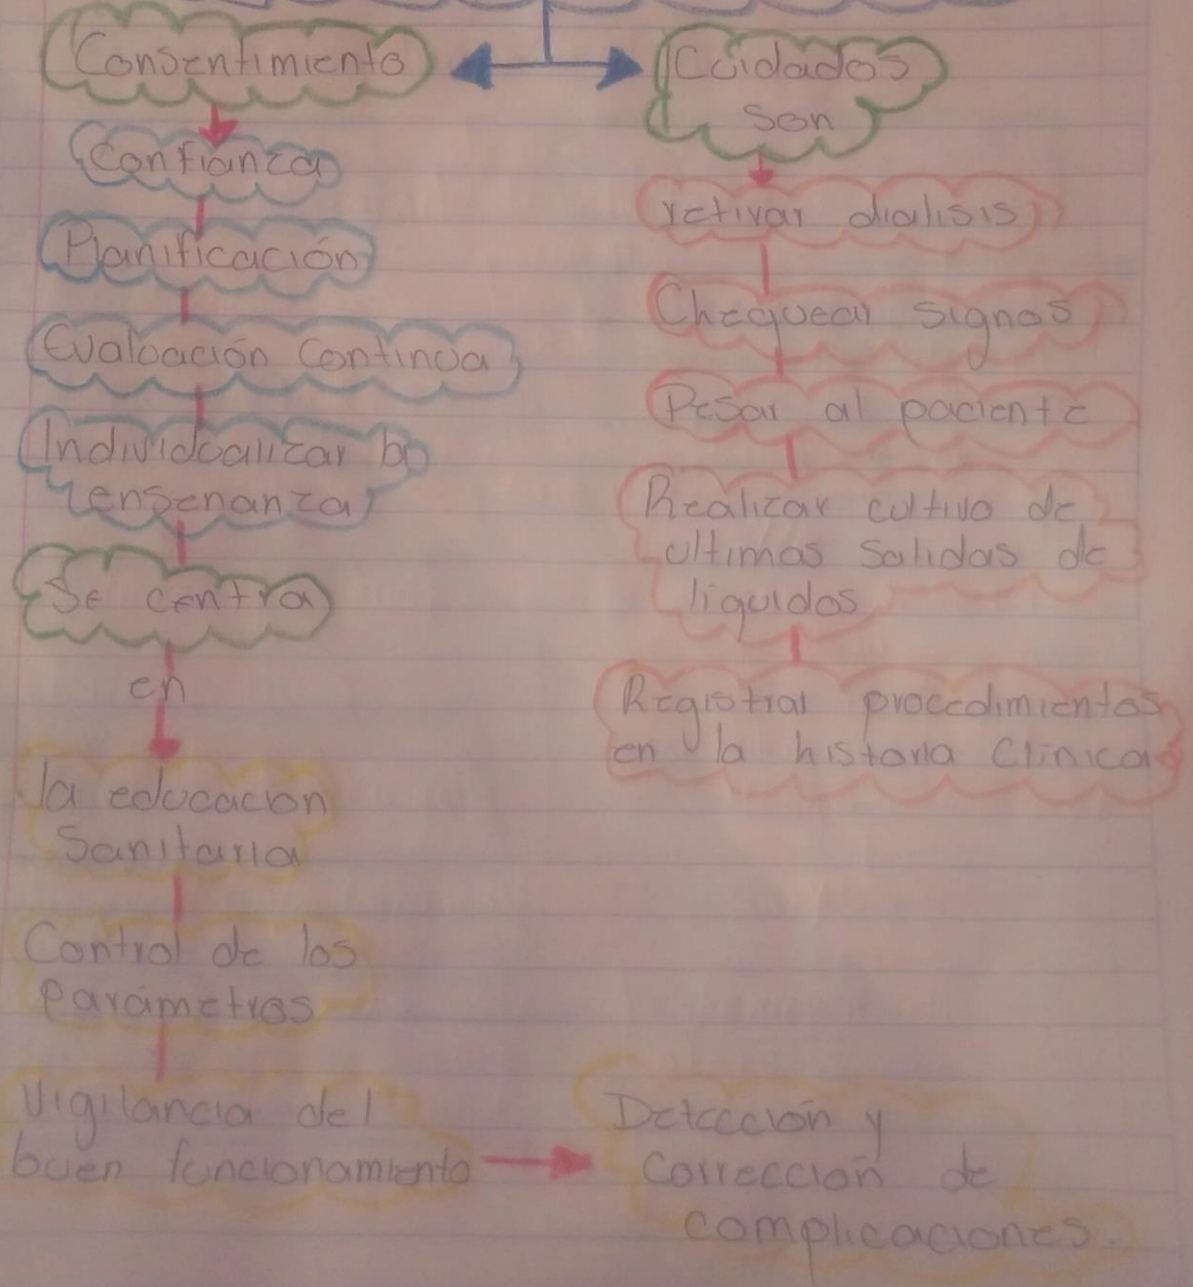 Consentimiento
Confianza
Planificación
Evaluación Continua
Individualizar la
ensenanza
Se centra
en
la educacion
Sanitaria
Control de los
Parámetros
Vigilancia del
buen funcionamiento
Detección y
Corrección de
complicaciones.
Cuidados
Son
retirar dialisis
Chequear signos
Pesar al paciente
Realizar cultivo de
ultimas salidas de
liquidos
Registrar procedimientos
en la historia Clinica